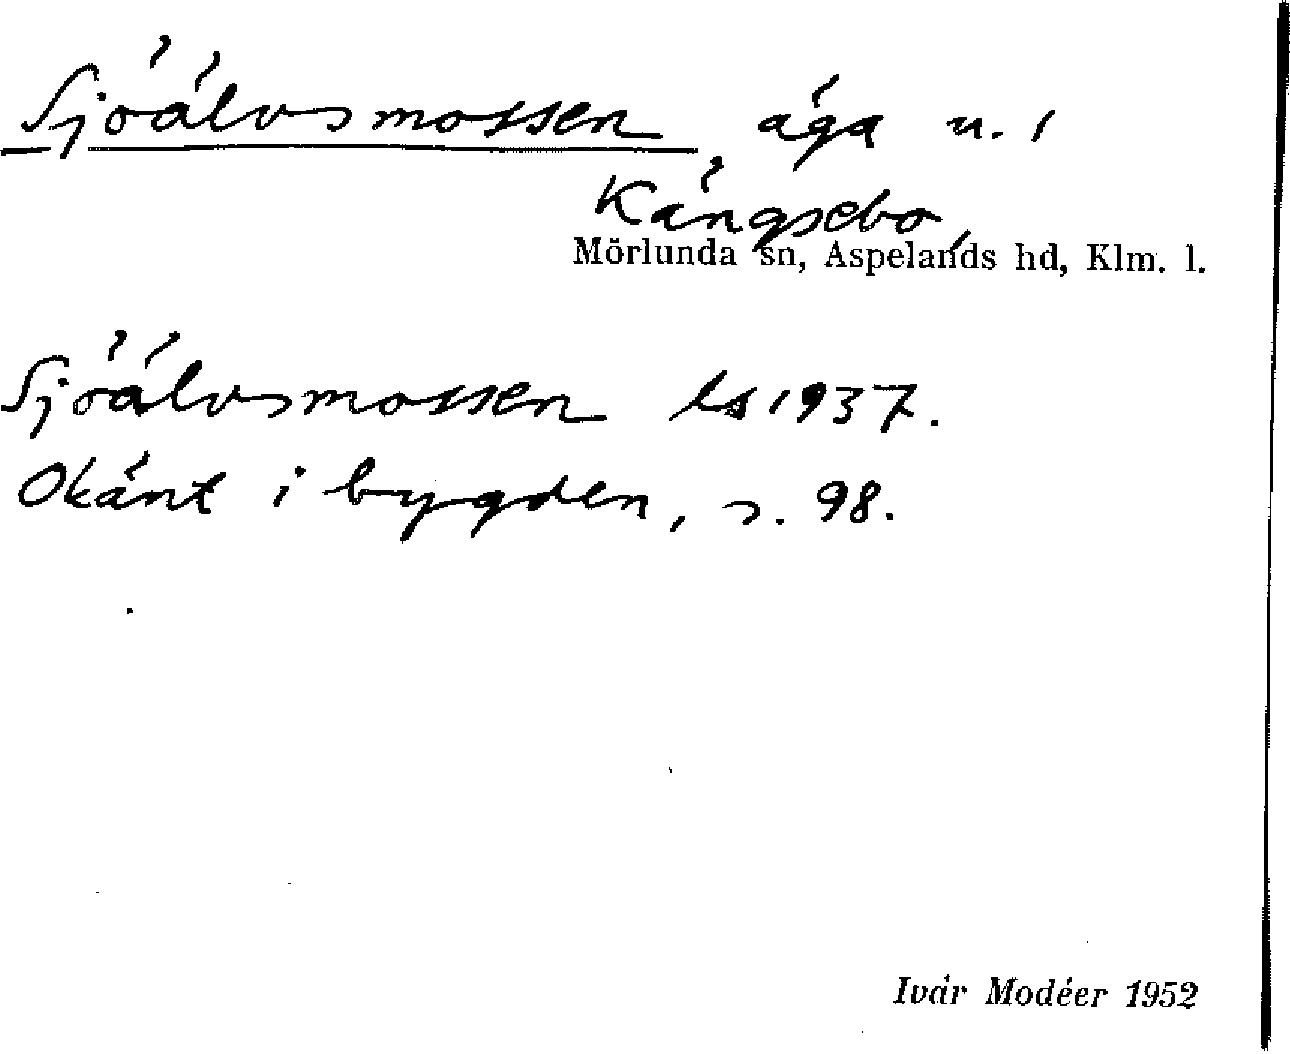 Sjöälvsmossen, äga u. /
Kängsebo,
Mörlunda sn, Aspelands hd, Klm. l.
Sjöälvsmossen ls 1937.
Okänt i bygden, s. 98.
Ivar Modéer 1952